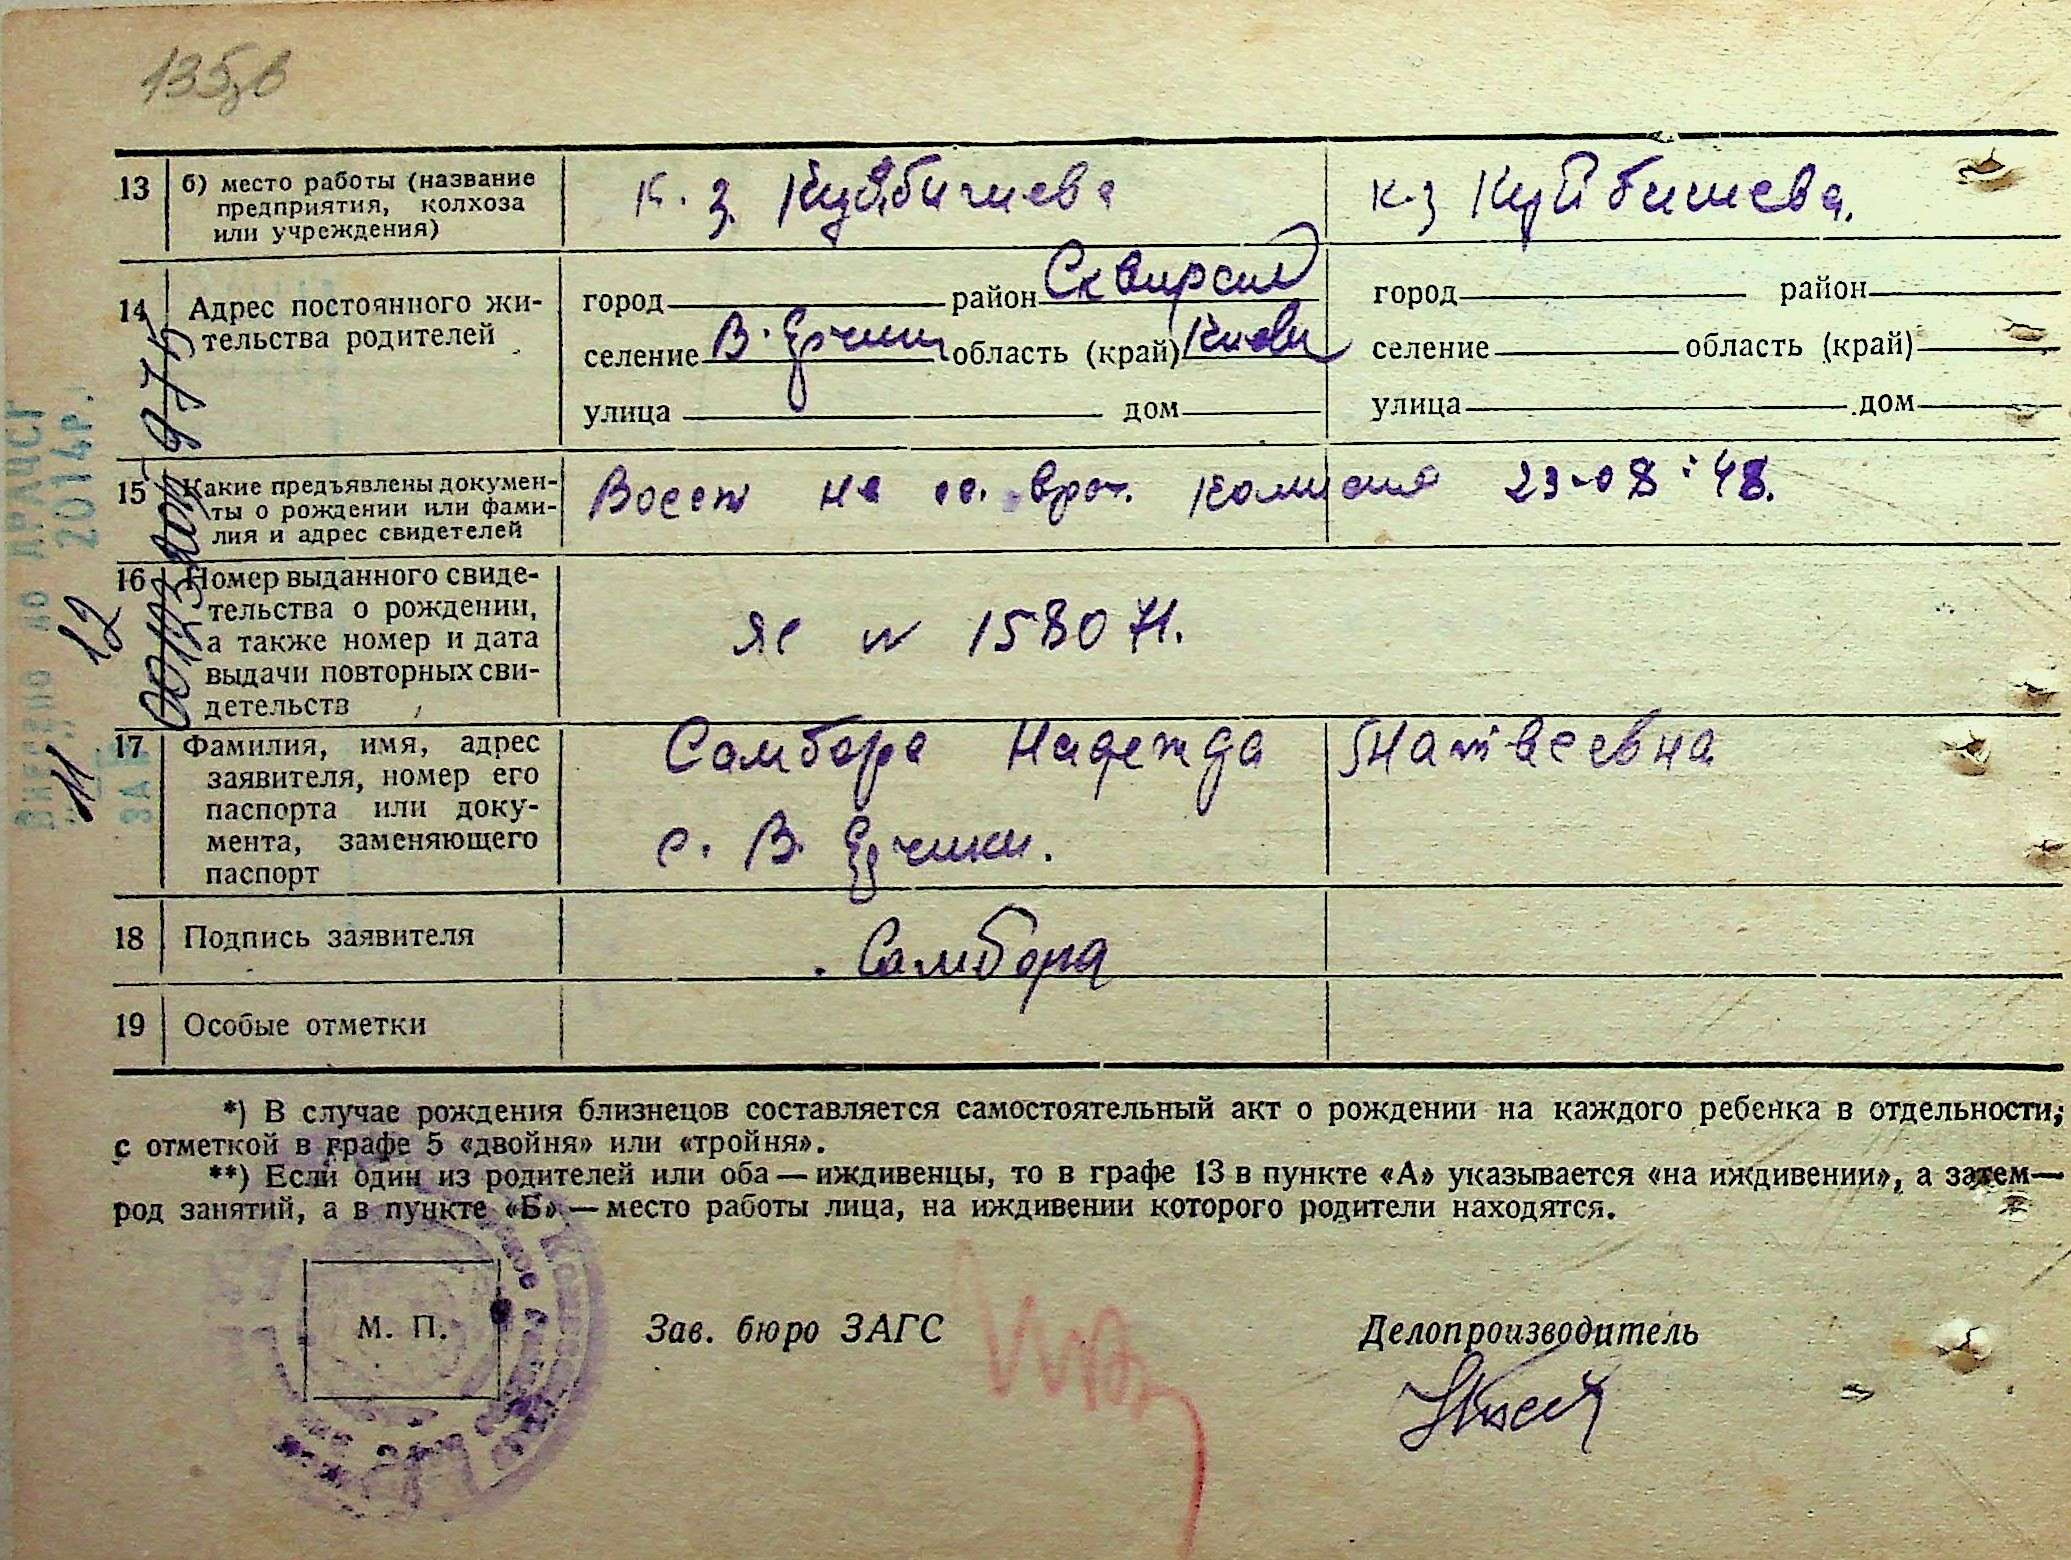 135зв
13 б) место работы (название
предприятия, колхоза
или учреждения)
к. з. Куйбишева
к-з Куйбишева.
14 Адрес постоянного жи-
тельства родителей
город район Сквирский
селение В. Ерчики область (край) Киевск
улица дом
город район
селение область (край)
улица дом
15 Какие предъявлены докумен-
ты о рождении или фами-
лия и адрес свидетелей
Восст на ос. врач. комисии 23-08-48.
16 Номер выданного свиде-
тельства о рождении,
а также номер и дата
выдачи повторных сви-
детельств
яс N 158071.
17 Фамилия, имя, адрес
заявителя, номер его
паспорта или доку-
мента, заменяющего
паспорт
Самбора Надежда Матвеевна
с. В. Ерчики.
18 Подпись заявителя
Самбора
19 Особые отметки
*) В случае рождения близнецов составляется самостоятельный акт о рождении на каждого ребенка в отдельности,
с отметкой в графе 5 «двойня» или «тройня».
**) Если один из родителей или оба — иждивенцы, то в графе 13 в пункте «А» указывается «на иждивении», а затем—
род занятий, а в пункте «Б» — место работы лица, на иждивении которого родители находятся.
М. П.
Зав. бюро ЗАГС
Делопроизводитель
Внесено до ДРАЦСГ
11 12 2014р.